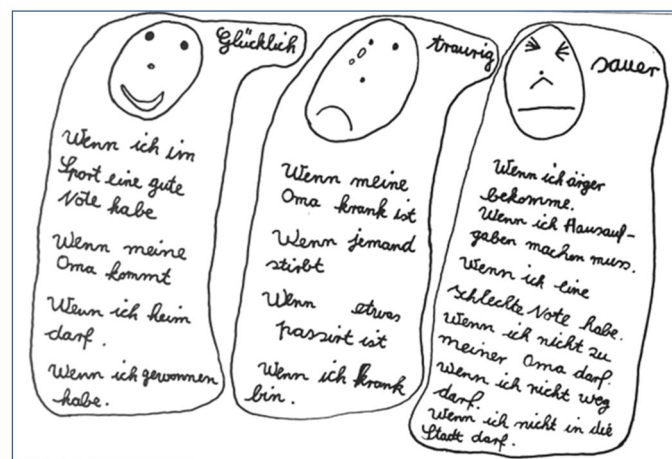 Glücklich
Wenn ich im
Sport eine gute
Note habe
Wenn meine
Oma kommt
Wenn ich heim
darf.
Wenn ich gewonnen
habe.
traurig
Wenn meine
Oma krank ist
Wenn jemand
stirbt
Wenn etwas
passirt ist
Wenn ich krank
bin.
sauer
Wenn ich ärger
bekomme.
Wenn ich Hausauf-
gaben machen muss.
Wenn ich eine
schlechte Note habe.
Wenn ich nicht zu
meiner Oma darf.
Wenn ich nicht weg
darf.
Wenn ich nicht in die
Stadt darf.